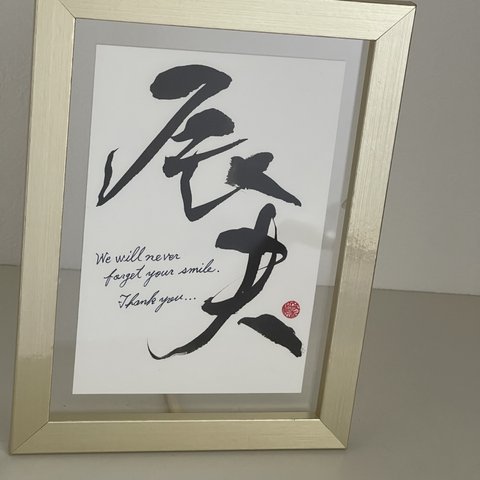 辰夫
We will never
forget your smile.
Thank you...